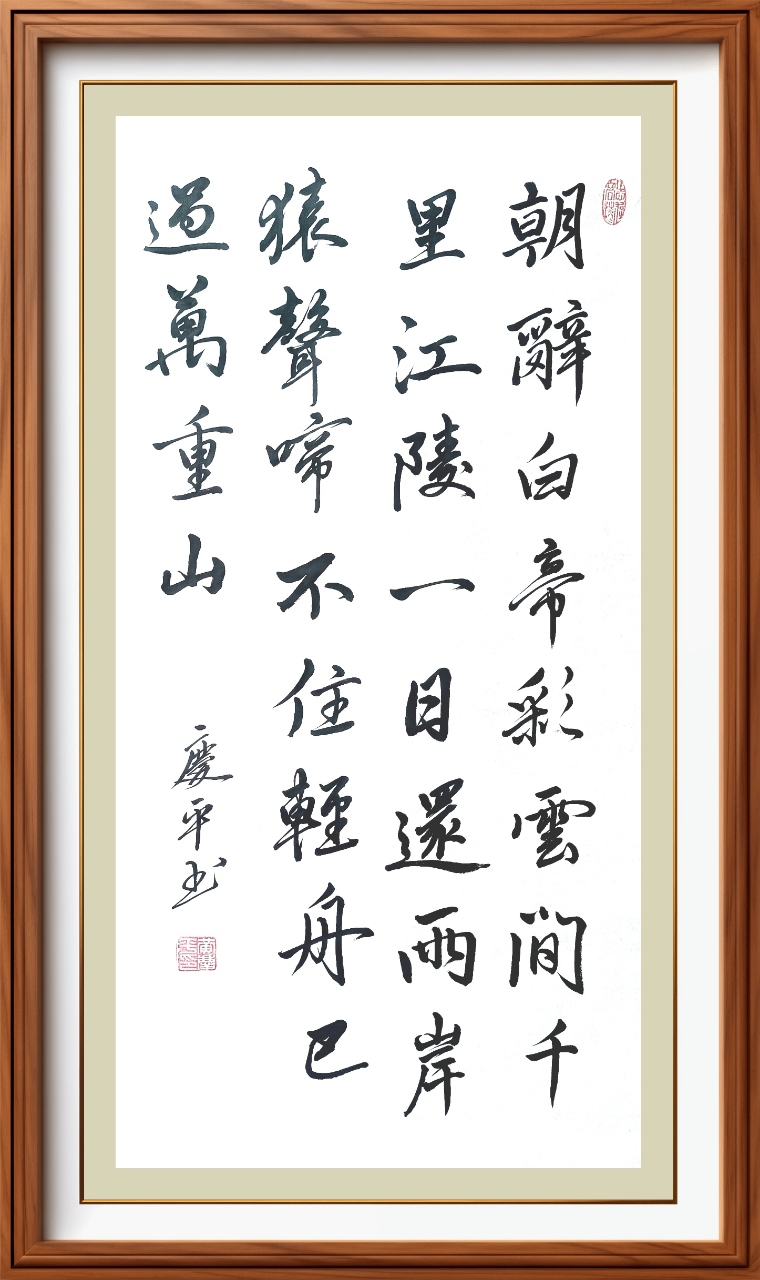 朝辭白帝彩雲間千
里江陵一日還兩岸
猿聲啼不住輕舟已
過萬重山
慶平书